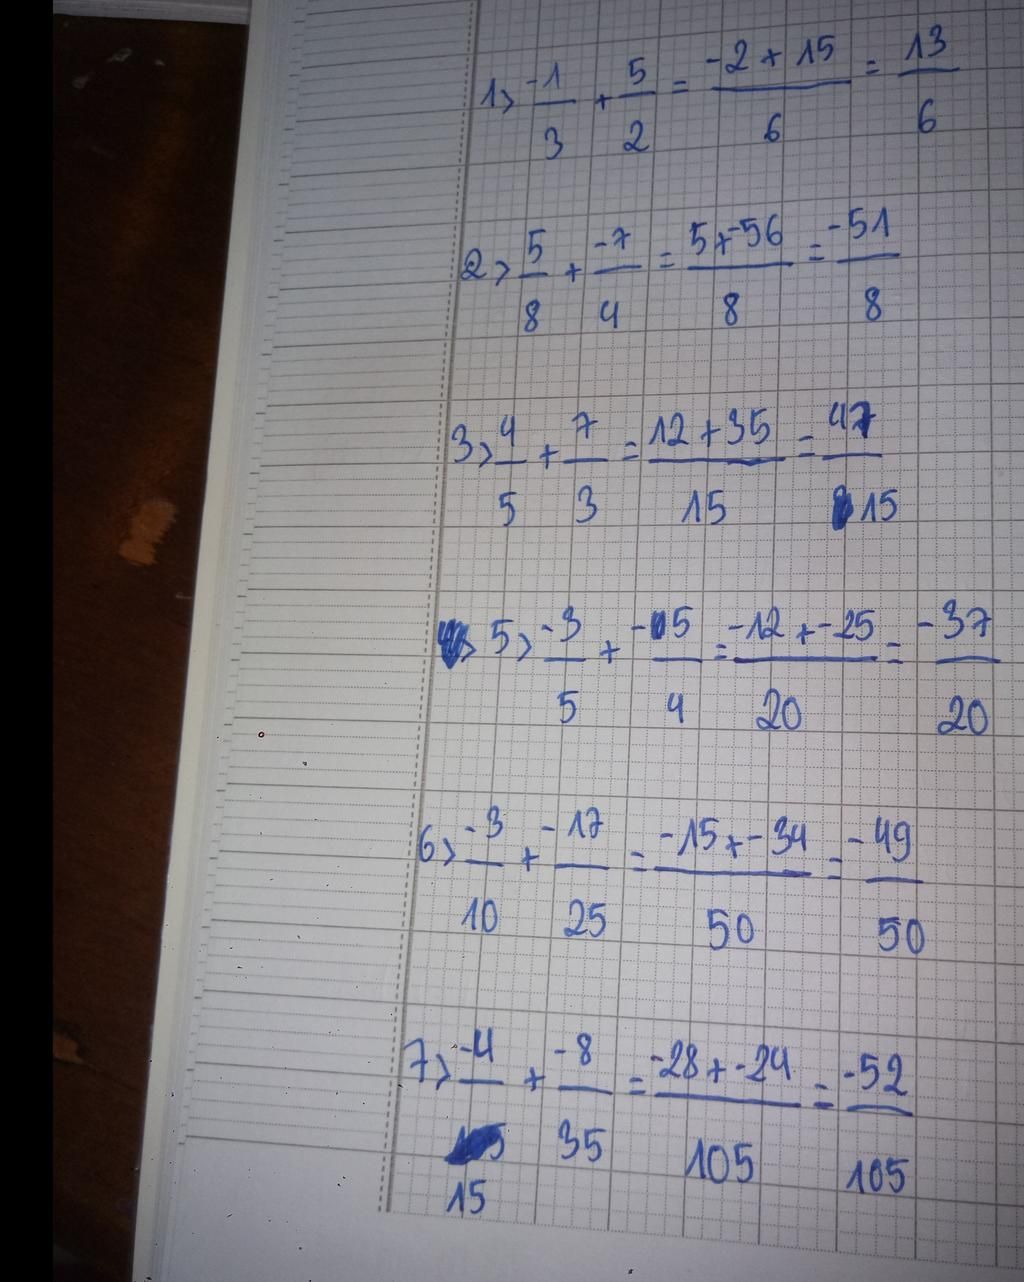 1> -1/3 + 5/2 = -2+15/6 = 13/6
2> 5/8 + -7/4 = 5+-56/8 = -51/8
3> 4/5 + 7/3 = 12+35/15 = 47/15
5> -3/5 + -5/4 = -12+-25/20 = -37/20
6> -3/10 + -17/25 = -15+-34/50 = -49/50
7> -4/15 + -8/35 = -28+-24/105 = -52/105